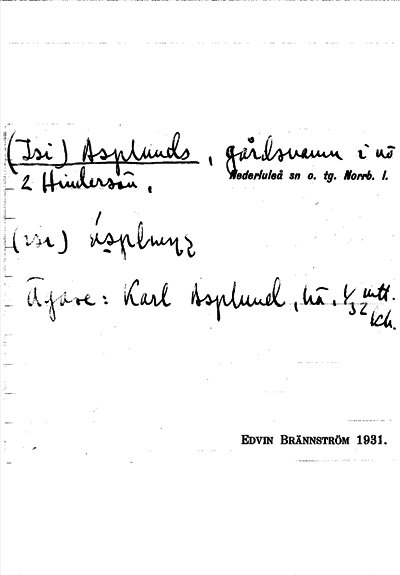 (Isi) Asplunds, gårdsnamn i nö
2 Hindersön, Nederluleå sn o. tg. Norrb. l.
(ısı)
Ägare: Karl Asplund, hä. 1/32 mtl.
EDVIN BRÄNNSTRÖM 1931.